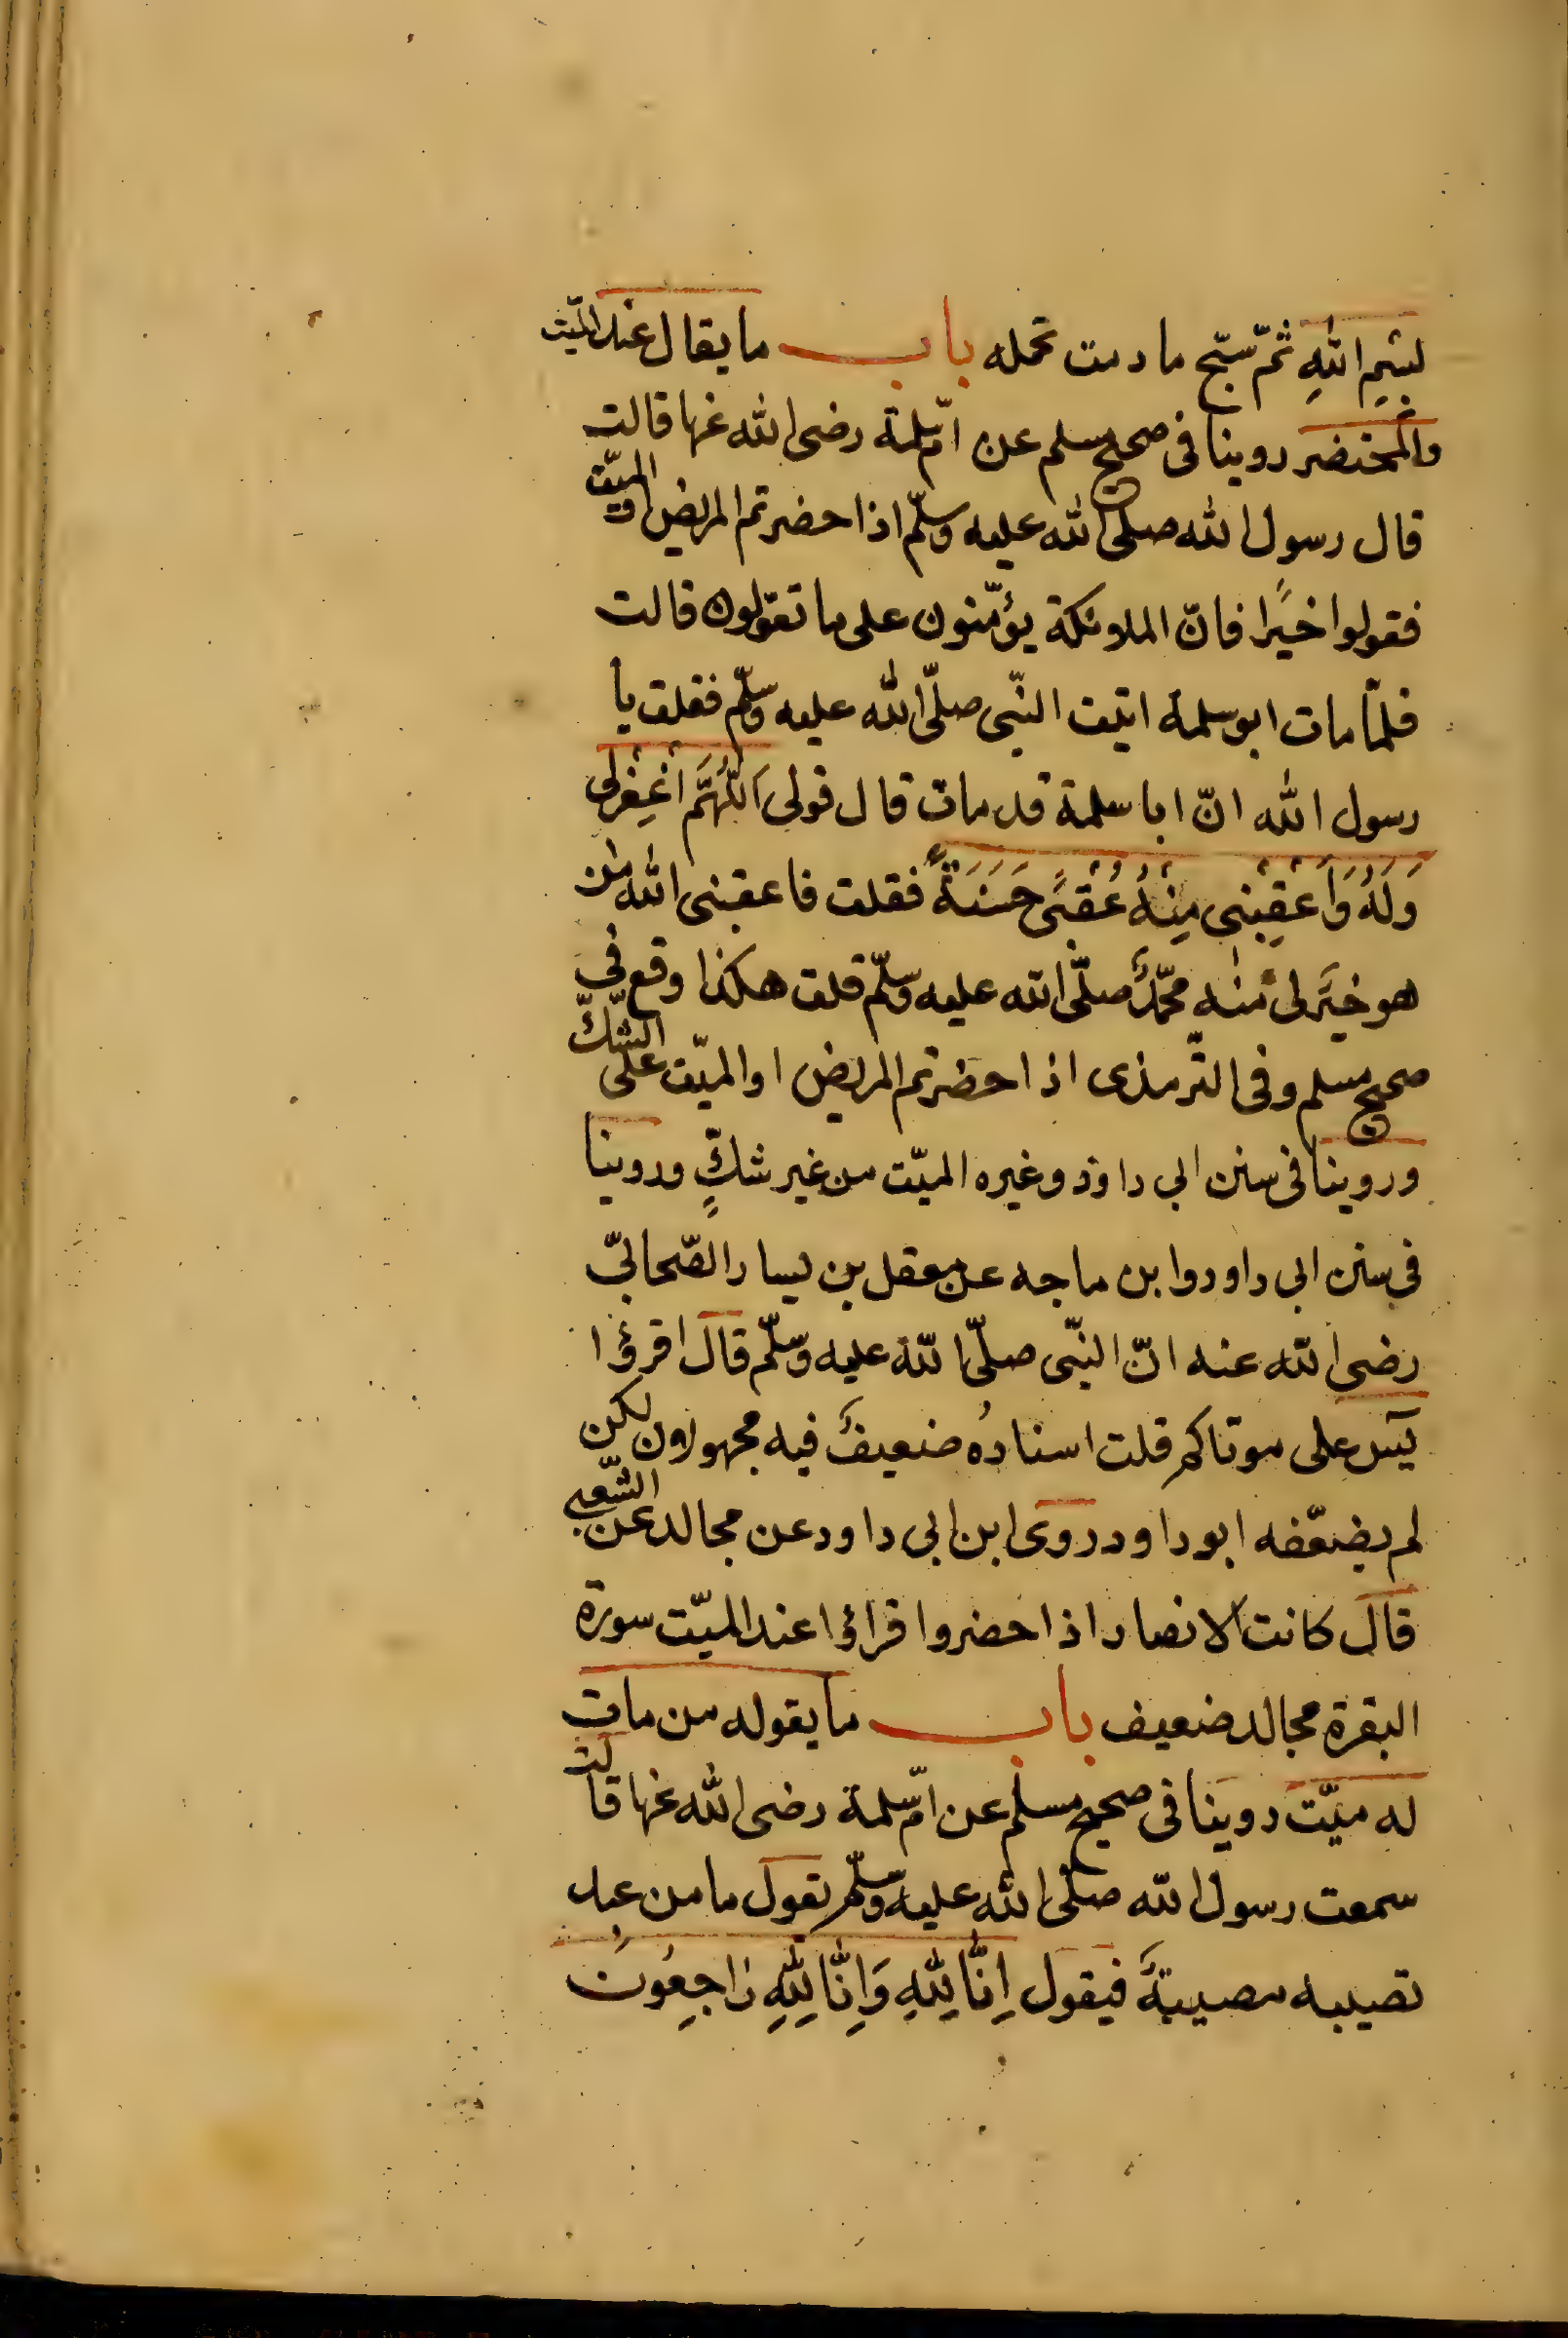 بِسْمِ اللهِ ثمّ سبّح ما دمت تحمله باب ما يقال عند الميّت
والمحتضر روينا فى صحيح مسلم عن امّ سلمة رضى الله عنها قالت
قال رسول الله صلّى الله عليه وسلّم اذا حضرتم المريض او الميّت
فقولوا خيرًا فانّ الملائكة يؤمّنون على ما تقولون قالت
فلمّا مات ابو سلمة اتيت النّبى صلّى الله عليه وسلّم فقلت يا
رسول الله انّ ابا سلمة قد مات قال قولى اَللّٰهُمَّ اغْفِرْلى
وَلَهُ وَاَعْقِبْنى مِنْهُ عُقْبًى حَسَنَةً فقلت فاعقبنى الله من
هو خيرٌ لى منه محمّدٌ صلّى الله عليه وسلّم قلت هكذا وقع فى
صحيح مسلم وفى التّرمذى اذا حضرتم المريض او الميّت على الشّكّ
وروينا فى سنن ابى داود وغيره الميّت من غير شكٍّ وروينا
فى سنن ابى داود وابن ماجه عن معقل بن يسار الصّحابىّ
رضى الله عنه انّ النّبى صلّى الله عليه وسلّم قال اقرؤا
يٓس على موتاكم قلت اسنادُه ضعيفٌ فيه مجهولون لكن
لم يضعّفه ابو داود روى ابن ابى داود عن مجالد عن الشّعبى
قال كانت الانصار اذا حضروا قراؤا عند الميّت سورة
البقرة مجالد ضعيف باب ما يقوله من مات
له ميّت روينا فى صحيح مسلم عن امّ سلمة رضى الله عنها قالت
سمعت رسول الله صلّى الله عليه وسلّم يقول ما من عبد
تصيبه مصيبةٌ فيقول اِنَّا لِلّٰهِ وَاِنَّا لِلّٰهِ رَاجِعُونَ